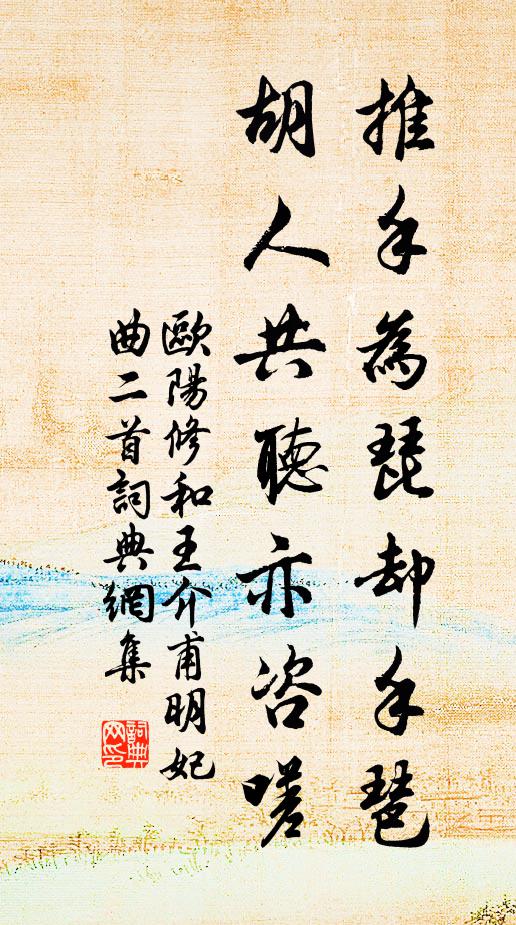 推手為琵却手琶
胡人共聽亦咨嗟
歐陽修和王介甫明妃
曲二首詞典網集
詞典網印